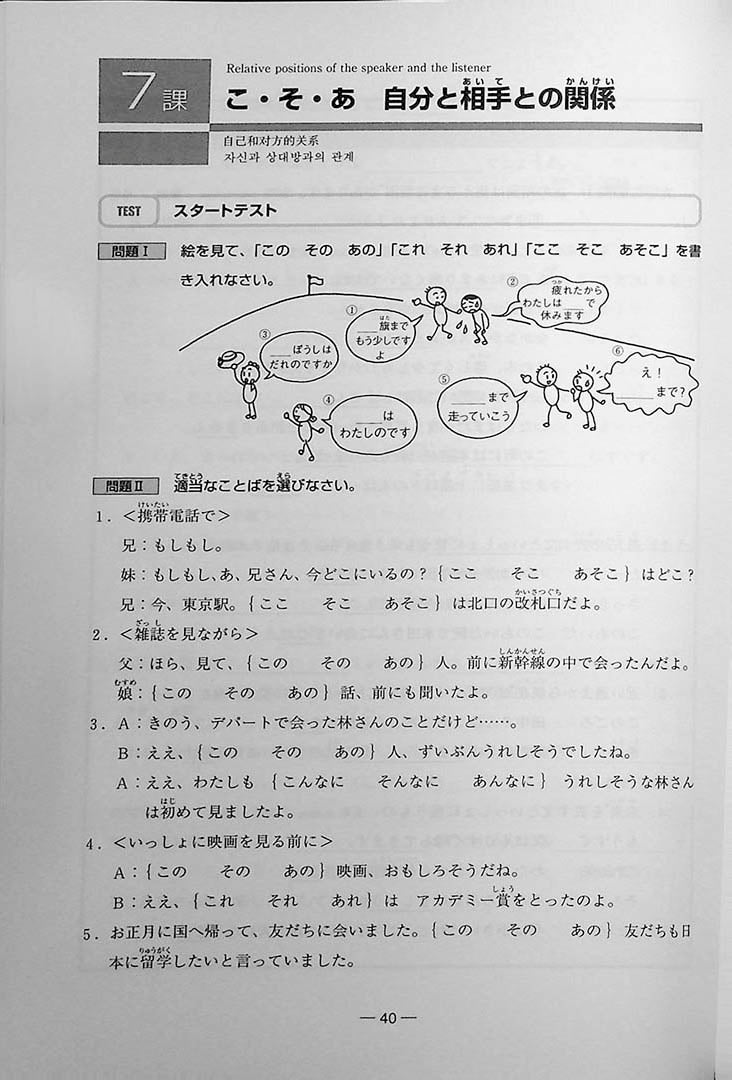 7課
Relative positions of the speaker and the listener
こ・そ・あ　自分と相手との関係
あいて　かんけい
自己和对方的关系
자신과 상대방과의 관계
TEST　スタートテスト
問題Ⅰ　絵を見て、「この　その　あの」「これ　それ　あれ」「ここ　そこ　あそこ」を書
き入れなさい。
①
___旗まで
はた
もう少しです
よ
②
疲れたから
つか
わたしは___で
休みます
③
___ぼうしは
だれのですか
④
___は
わたしのです
⑤
___まで
走っていこう
⑥
え！
___まで?
問題Ⅱ　適当なことばを選びなさい。
てきとう　えら
1．＜携帯電話で＞
けいたい
兄：もしもし。
妹：もしもし、あ、兄さん、今どこにいるの？｛ここ　そこ　あそこ｝はどこ？
兄：今、東京駅。｛ここ　そこ　あそこ｝は北口の改札口だよ。
かいさつぐち
2．＜雑誌を見ながら＞
ざっし
父：ほら、見て、｛この　その　あの｝人。前に新幹線の中で会ったんだよ。
しんかんせん
娘：｛この　その　あの｝話、前にも聞いたよ。
むすめ
3．A：きのう、デパートで会った林さんのことだけど……。
B：ええ、｛この　その　あの｝人、ずいぶんうれしそうでしたね。
A：ええ、わたしも｛こんなに　そんなに　あんなに｝うれしそうな林さん
は初めて見ましたよ。
はじ
4．＜いっしょに映画を見る前に＞
A：｛この　その　あの｝映画、おもしろそうだね。
B：ええ、｛これ　それ　あれ｝は　アカデミー賞をとったのよ。
しょう
5．お正月に国へ帰って、友だちに会いました。｛この　その　あの｝友だちも日
本に留学したいと言っていました。
りゅうがく
— 40 —